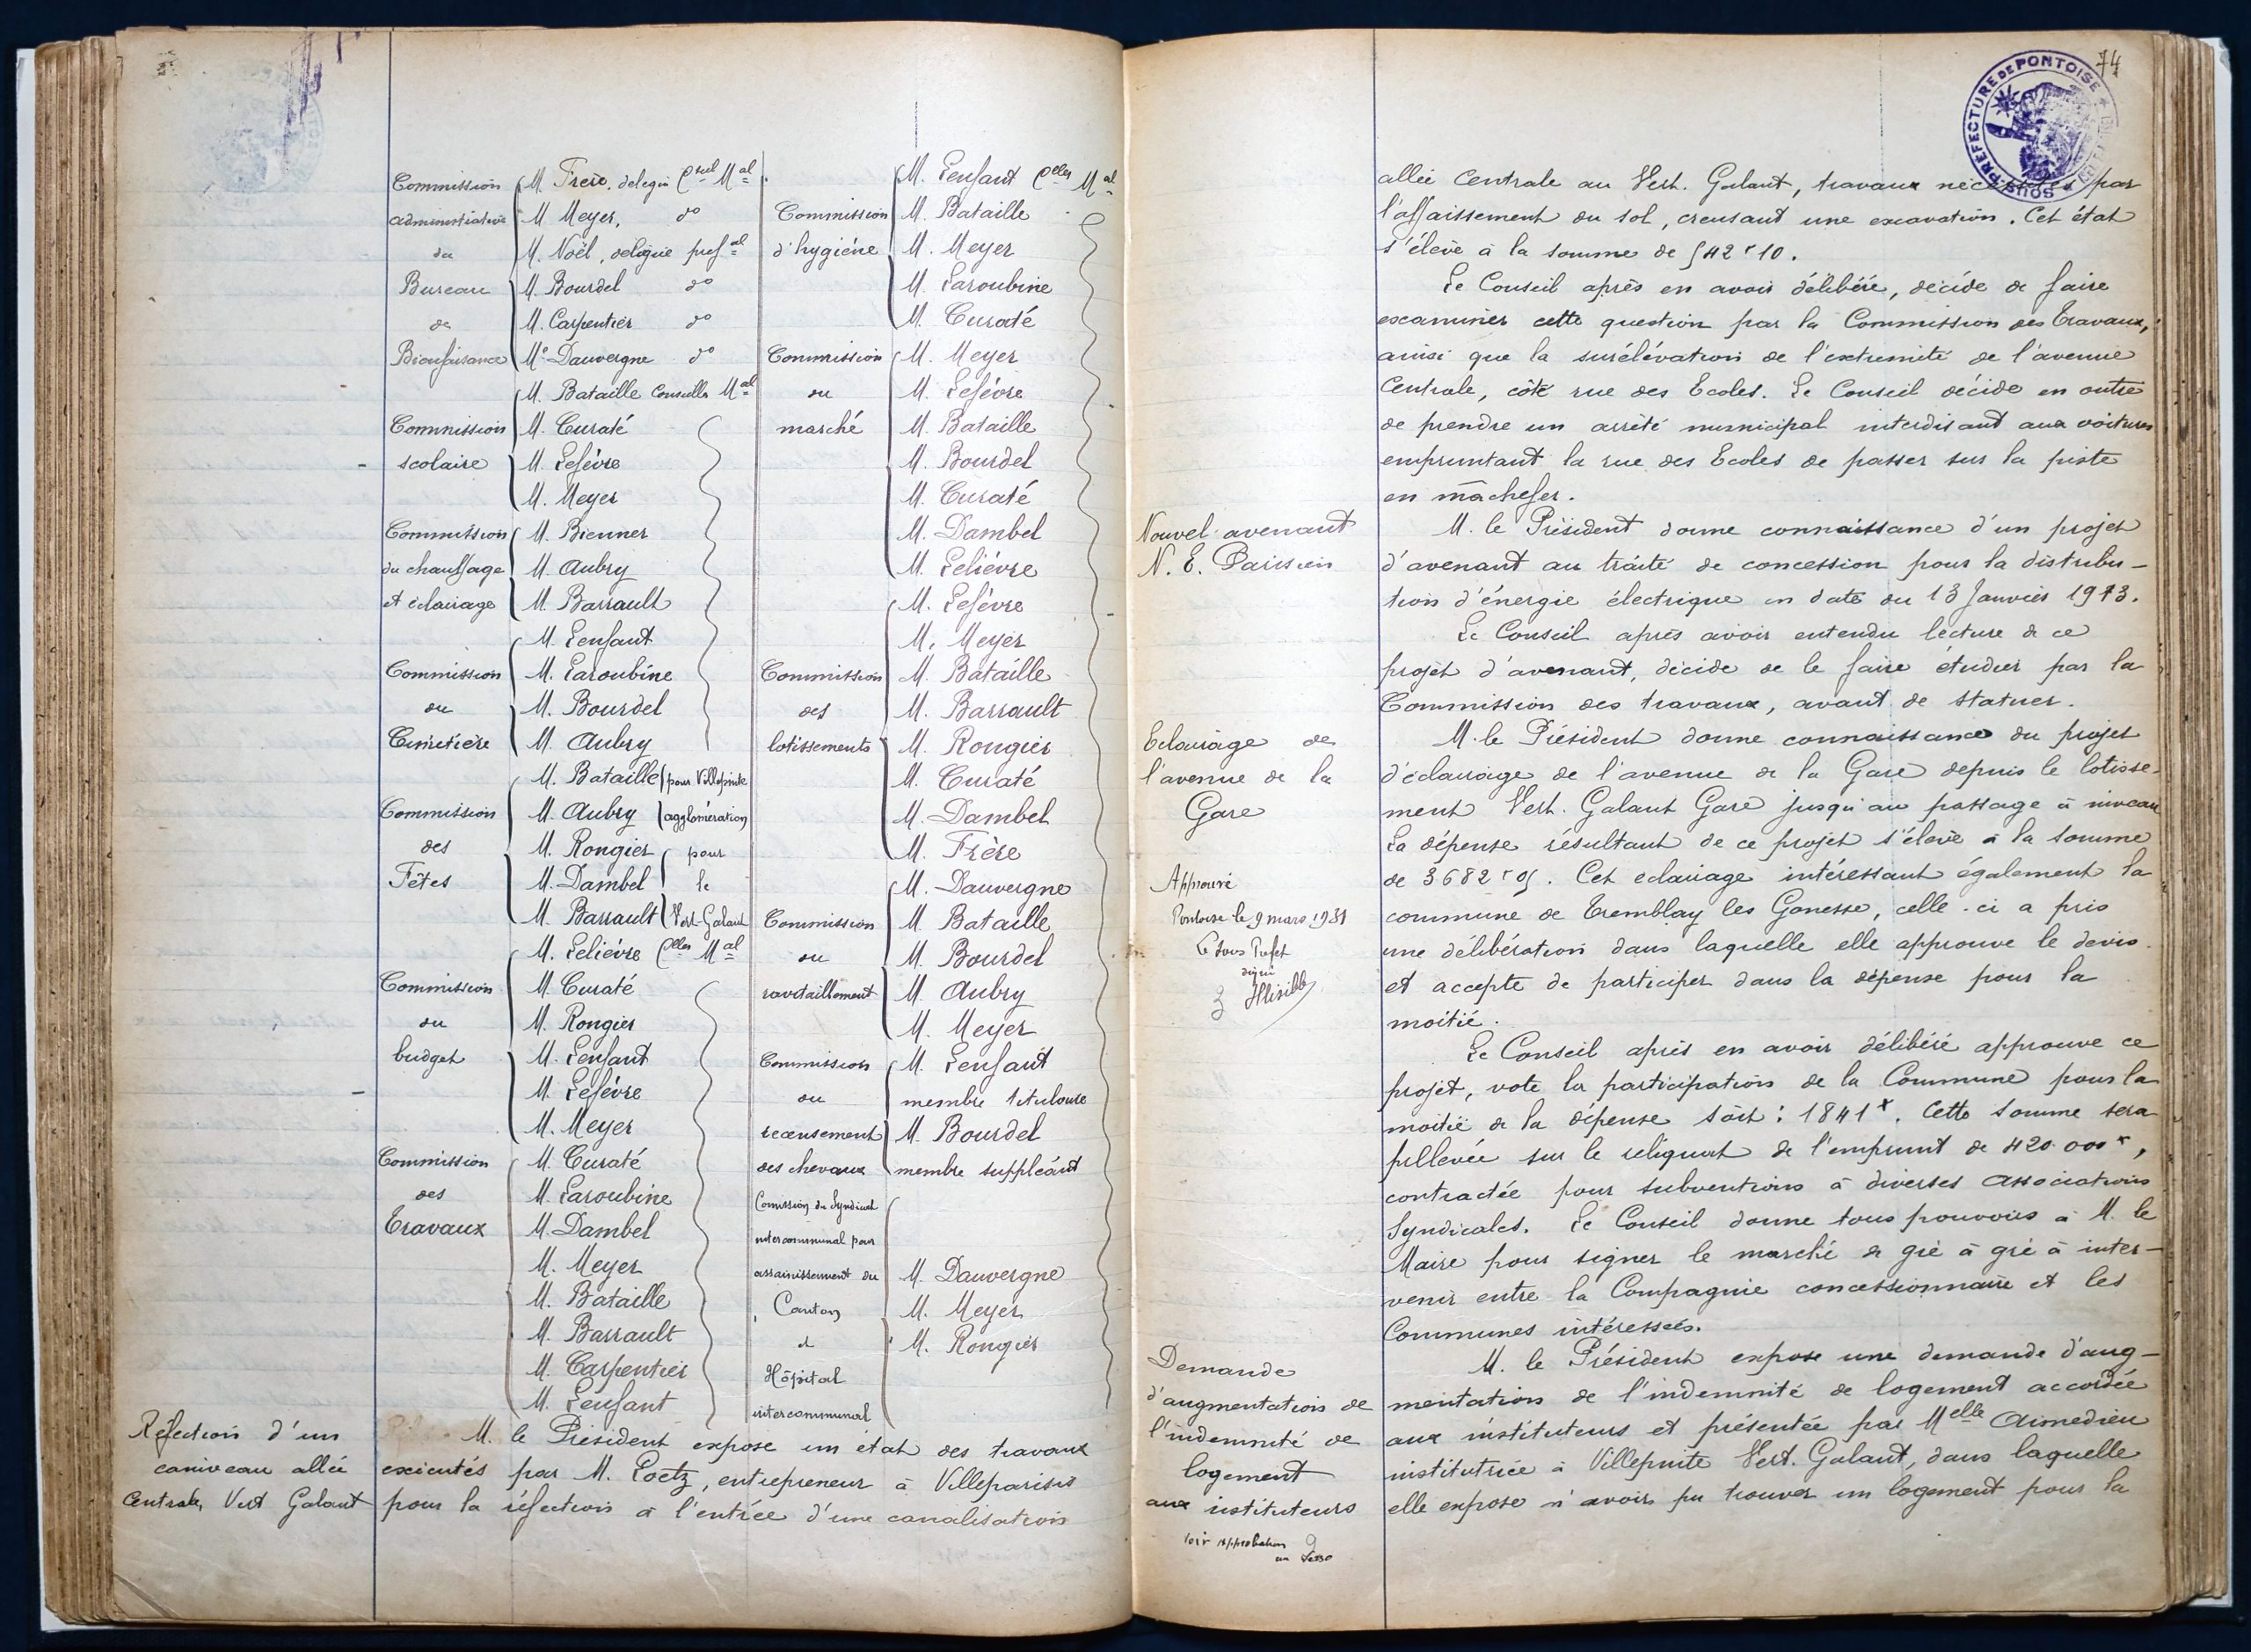 Commission
administrative
du
Bureau
de
Bienfaisance
M. Frère, délégué Cseil Mal
M Meyer, do
M. Noël, délégué prefal
M. Bourdel do
M. Carpentier do
Me Dauvergne do
Commission
scolaire
M. Bataille Conseiller Mal
M. Curaté
M. Lefèvre
M. Meyer
Commission
du chauffage
et éclairage
M. Bienner
M. Aubry
M. Barrault
Commission
du
Cimetière
M. Lenfant
M. Laroubine
M. Bourdel
M. Aubry
Commission
des
Fêtes
M. Bataille
M. Aubry
pour Villepinte
agglomération
M. Rongier
M. Dambel
M. Barrault
pour
le
Vert-Galant
Commission
du
budget
M. Lelièvre Celler Mal
M. Curaté
M. Rongier
M. Lenfant
M. Lefèvre
M. Meyer
Commission
des
Travaux
M. Curaté
M. Laroubine
M. Dambel
M. Meyer
M. Bataille
M. Barrault
M. Carpentier
M. Lenfant
Commission
d'hygiène
M. Lenfant Celler Mal
M. Bataille
M. Meyer
M. Laroubine
M. Curaté
Commission
du
marché
M. Meyer
M. Lefèvre
M. Bataille
M. Bourdel
M. Curaté
M. Dambel
M. Lelièvre
Commission
des
lotissements
M. Lefèvre
M. Meyer
M. Bataille
M. Barrault
M. Rongier
M. Curaté
M. Dambel
M. Frère
Commission
du
ravitaillement
M. Dauvergne
M. Bataille
M. Bourdel
M. Aubry
M. Meyer
Commission
du
recensement
des chevaux
M. Lenfant
membre titulaire
M. Bourdel
membre suppléant
Comission du Syndicat
intercommunal pour
assainissement du
Canton
et
Hôpital
intercommunal
M. Dauvergne
M. Meyer
M. Rongier
Réfection d'un
caniveau allée
Centrale, Vert Galant
M. le Président expose un état des travaux
exécutés par M. Loetz, entrepreneur à Villeparisis
pour la réfection à l'entrée d'une canalisation
74
SOUS-PREFECTURE DE PONTOISE
allée Centrale au Vert. Galant, travaux nécessités par
l'affaissement du sol, creusant une excavation. Cet état
s'élève à la somme de 542 f 10.
Le Conseil après en avoir délibéré, décide de faire
examiner cette question par la Commission des Travaux,
ainsi que la surélévation de l'extrémité de l'avenue
Centrale, côté rue des Ecoles. Le Conseil décide en outre
de prendre un arrêté municipal interdisant aux voitures
empruntant la rue des Ecoles de passer sur la piste
en mâchefer.
Nouvel avenant
N. E. Parisien
M. le Président donne connaissance d'un projet
d'avenant au traité de concession pour la distribu-
tion d'énergie électrique en date du 13 Janvier 1913.
Le Conseil après avoir entendu lecture de ce
projet d'avenant, décide de le faire étudier par la
Commission des travaux, avant de statuer.
Eclairage de
l'avenue de la
Gare
Approuvé
Pontoise le 9 mars 1931
Le Sous Préfet
signé
Illisible
M. le Président donne connaissance du projet
d'éclairage de l'avenue de la Gare depuis le lotisse-
ment Vert. Galant Gare jusqu'au passage à niveau
La dépense résultant de ce projet s'élève à la somme
de 3682 f 05. Cet eclairage intéressant également la
commune de Tremblay les Gonesse, celle-ci a pris
une délibération dans laquelle elle approuve le devis
et accepte de participer dans la dépense pour la
moitié.
Le Conseil après en avoir délibéré approuve ce
projet, vote la participation de la Commune pour la
moitié de la dépense soit: 1841 f. Cette somme sera
prélevée sur le reliquat de l'emprunt de 420.000 f,
contractée pour subventions à diverses Associations
Syndicales. Le Conseil donne tous pouvoirs à M. le
Maire pour signer le marché de gré à gré à inter-
venir entre la Compagnie concessionnaire et les
Communes intéressées.
Demande
d'augmentation de
l'indemnité de
logement
aux instituteurs
voir approbation
au verso
M. le Président expose une demande d'aug-
mentation de l'indemnité de logement accordée
aux instituteurs et présentée par Melle Aimedieu
institutrice à Villepinte Vert. Galant, dans laquelle
elle expose n'avoir pu trouver un logement pour la